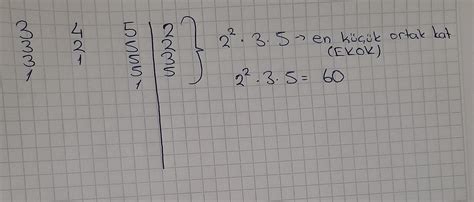 3 4 5 | 2
3 2 5 | 2
3 1 5 | 3
1 5 | 5
1
2² · 3 · 5 → en küçük ortak kat
(EKOK)
2² · 3 · 5 = 60